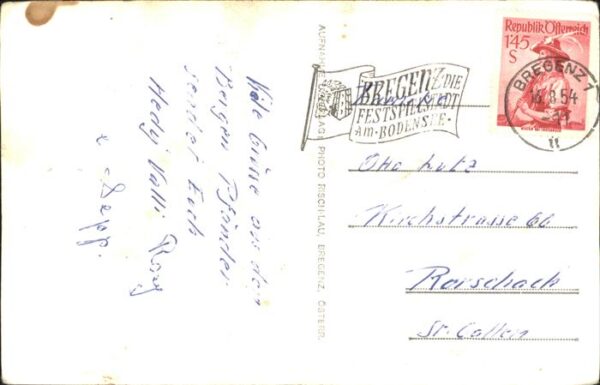 Viele Grüsse aus den
Bergen Pfänder
sendet Euch
Hedy Valli Rösy
Sepp.
AUFNAHME
PHOTO RISCHLAU, BREGENZ, ÖSTERR.
BREGENZ, DIE
FESTSPIELSTADT
-AM-BODENSEE-
Republik Österreich
1'45
S
BREGENZ 1
8 54
Familie
Otto Lutz
Kirchstrasse 66
Rorschach
St. Gallen